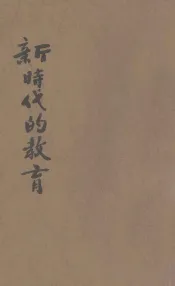 新時代的教育